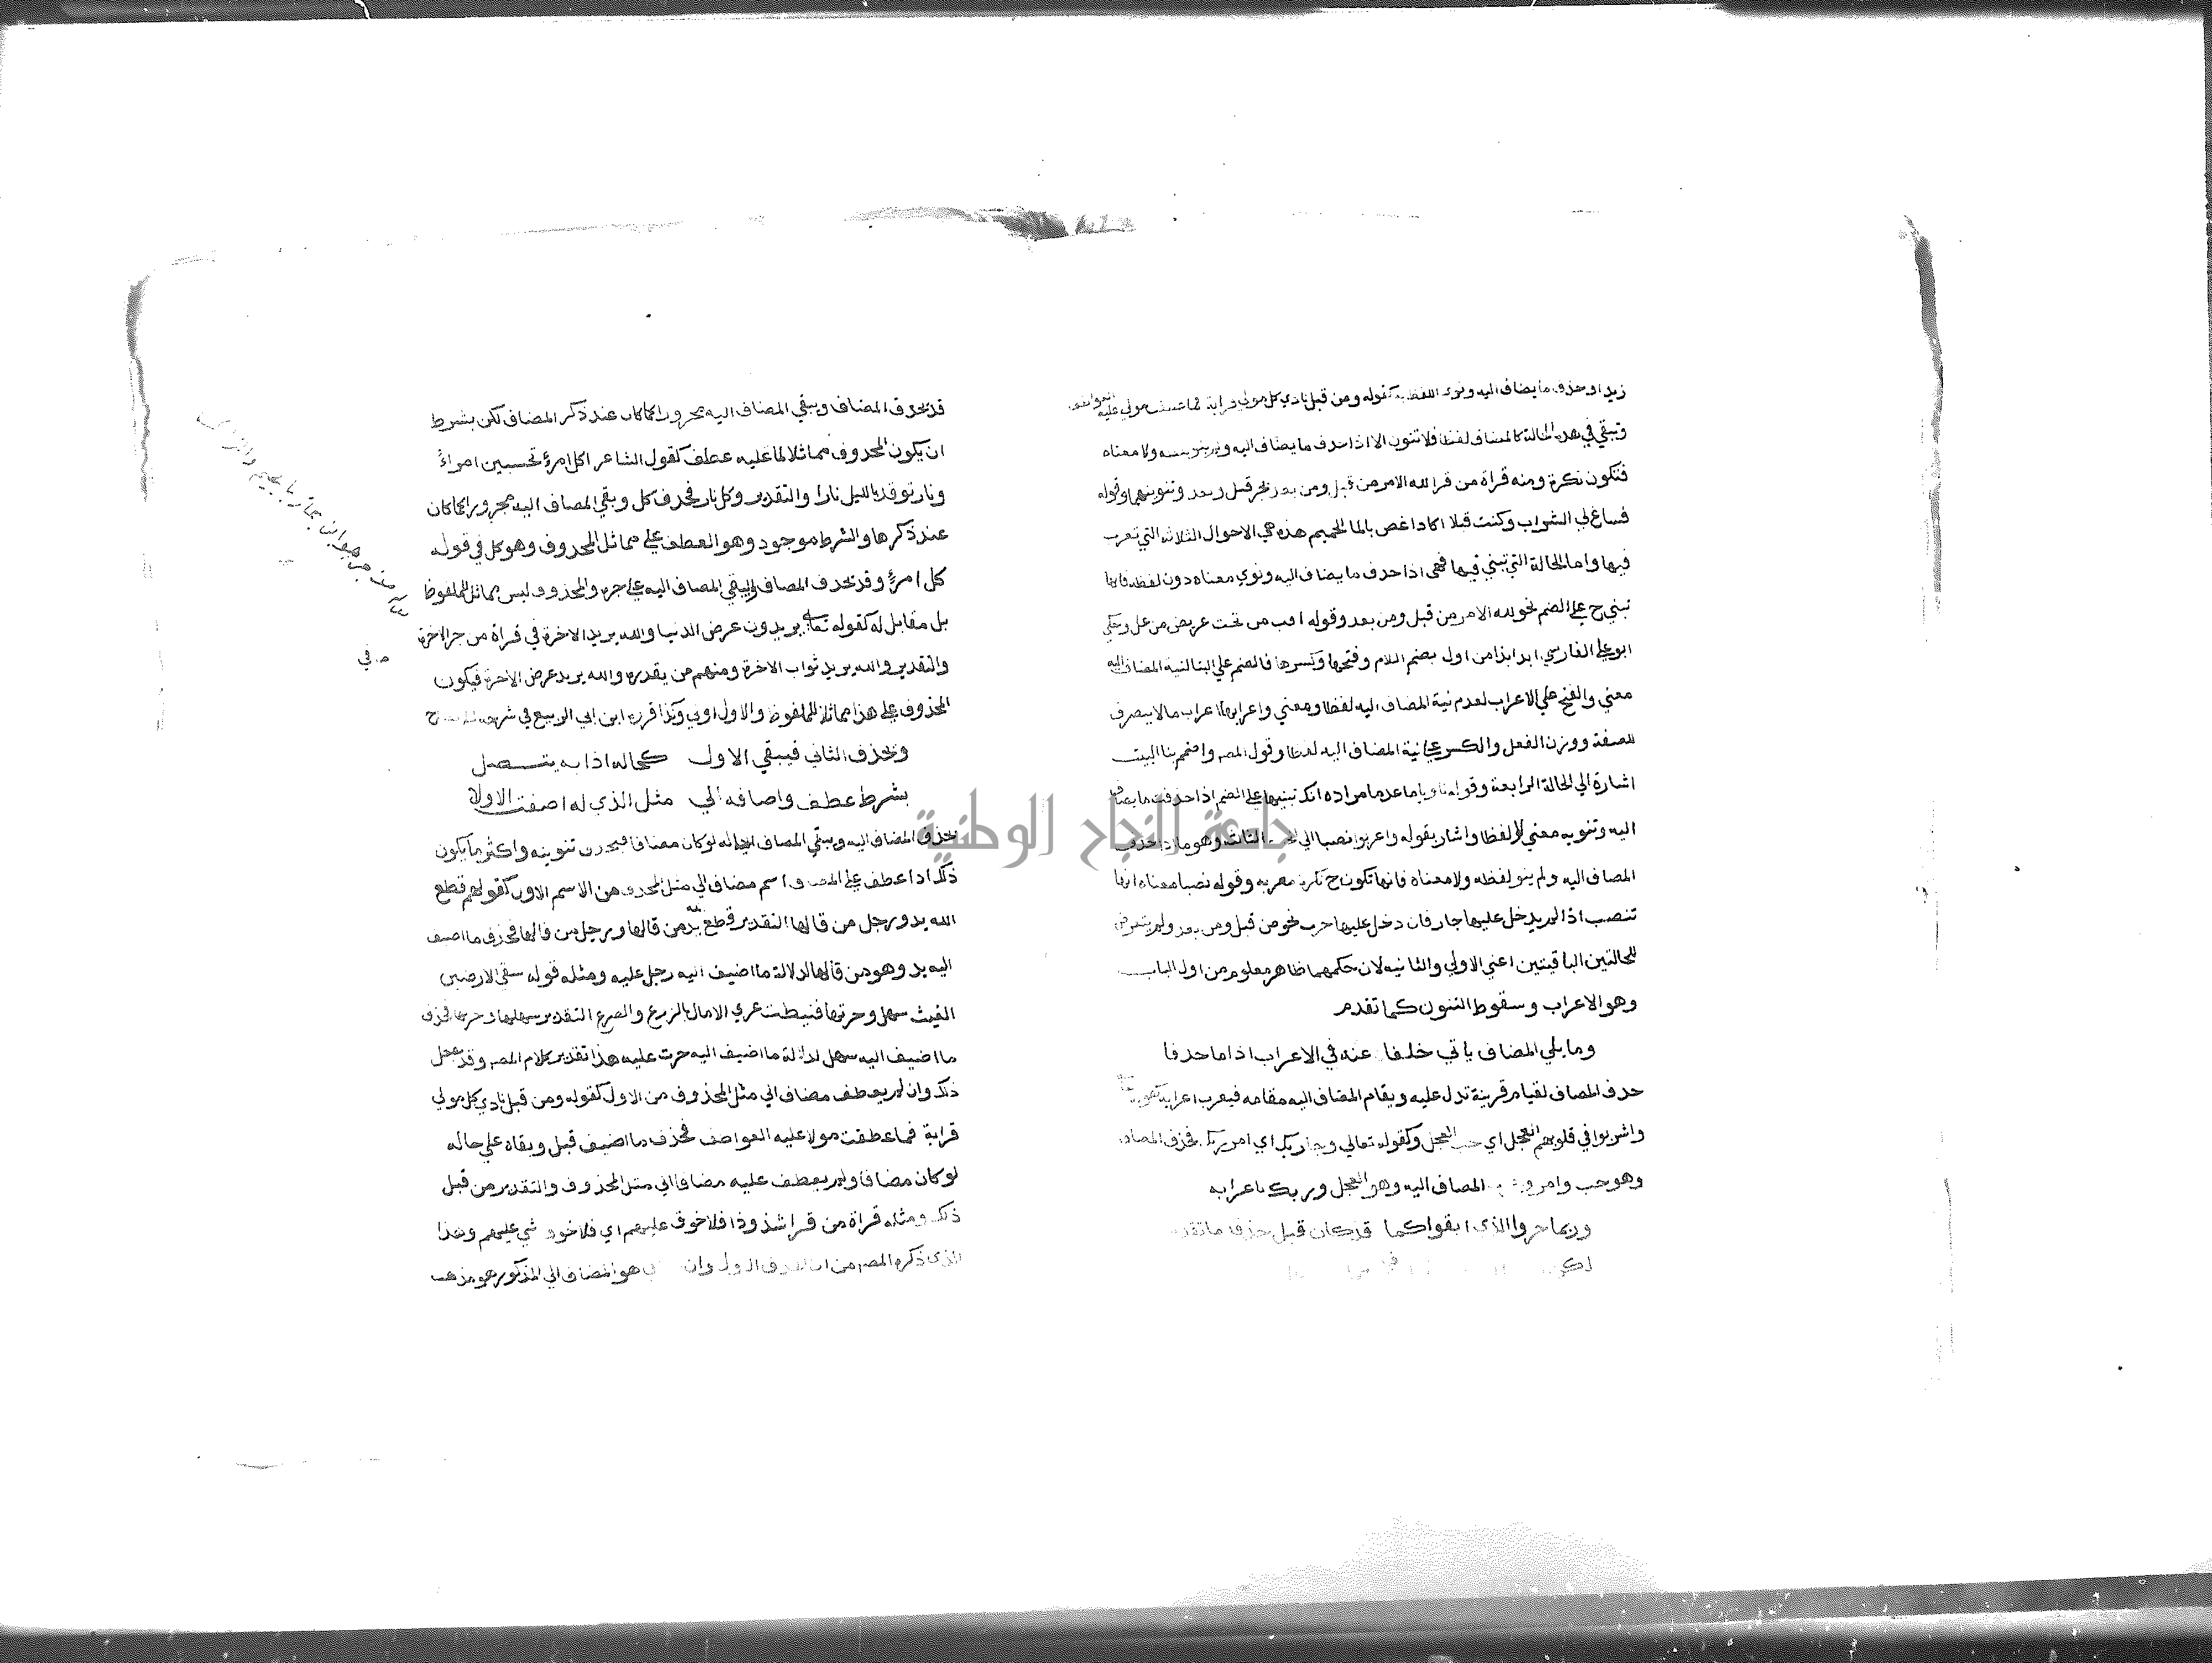 زيد او حذف ما يضاف اليه ونوى اللفظ كقوله ومن قبل نادي كل مولي قرابة فما عطفت مولي عليه العواطف
وتبقي في هذه الحالة كالمضاف لفظا فلا تنون الا اذا حذف ما يضاف اليه ولم ينو لفظه ولا معناه
فتكون نكرة ومنه قراة من قرا لله الامر من قبل ومن بعد بجر قبل وبعد وتنوينهما وقوله
فساغ لي الشراب وكنت قبلا اكاد اغص بالما الحميم هذه هي الاحوال الثلاثه التي تعرب
فيها واما الحالة التي تبني فيها فهي اذا حذف ما يضاف اليه ونوي معناه دون لفظه فانها
تبني ح علي الضم نحو لله الامر من قبل ومن بعد وقوله اقب من تحت عريض من عل وحكي
ابو علي الفارسي ابدا بذا من اول بضم اللام وفتحها وكسرها فالضم علي البنا لنية المضاف اليه
معني والفتح علي الاعراب لعدم نية المضاف اليه لفظا ومعني واعرابها اعراب ما لا ينصرف
للصفة ووزن الفعل والكسر علي نية المضاف اليه لفظا وقول المصـ واضمم بنا البيت
اشارة الي الحالة الرابعة وقوله ناويا ما عدما مراده انك تبنيها علي الضم اذا حذفت ما يضاف
اليه وتنويه معني لا لفظا واشار بقوله واعربوا نصبا الي الثالثة وهو ما اذا حذف
المضاف اليه ولم ينو لفظه ولا معناه فانها تكون ح نكرة معربه وقوله نصبا معناه انها
تنصب اذا لم يدخل عليها جار فان دخل عليها جرت نحو من قبل ومن بعد ولم يتعرض
للحالتين الباقيتين اعني الاولي والثانيه لان حكمهما ظاهر معلوم من اول الباب
وهو الاعراب وسقوط التنون كما تقدم
وما يلي المضاف ياتي خلفا عنه في الاعراب اذا ما حذفا
حذف المضاف لقيام قرينة تدل عليه ويقام المضاف اليه مقامه فيعرب اعرابه كقوله تعالي
واشربوا في قلوبهم العجل اي حب العجل وكقوله تعالي وجا ربك اي امر ربك فحذف المضاف
وهو حب وامر المضاف اليه وهو العجل وربك باعرابه
وربما جروا الذي ابقوا كما قد كان قبل حذف ما تقدما
لكن
قد يحذف المضاف ويبقي المضاف اليه مجرورا كما كان عند ذكر المضاف لكن بشرط
ان يكون المحذوف مماثلا لما عليه عطف كقول الشاعر اكل امرئ تحسبين امراءً
ونار توقد بالليل نارا والتقدير وكل نار فحذف كل وبقي المضاف اليه مجرورا كما كان
عند ذكرها والشرط موجود وهو العطف علي مماثل المحذوف وهو كل في قوله
كل امرئ وقد يحذف المضاف ويبقي المضاف اليه علي جره والمحذوف ليس مماثل للملفوظ
بل مقابل له كقوله تعالي يريدون عرض الدنيا والله يريد الاخرة في قراة من جر الاخرة
والتقدير والله يريد ثواب الاخرة ومنهم من يقدره والله يريد عرض الاخرة فيكون
المحذوف علي هذا مماثلا للملفوظ والاول اولي وكذا قرره ابن ابي الربيع في شرحه للايضاح
ويحذف الثاني فيبقي الاول كحاله اذا به يتصل
بشرط عطف واضافه الي مثل الذي له اضفت الاولا
يحذف المضاف اليه ويبقي المضاف كحاله لو كان مضافا فيحذف تنوينه واكثر ما يكون
ذلك اذا عطف علي المضاف اسم مضاف الي مثل المحذوف من الاسم الاول كقولهم قطع
الله يد ورجل من قالها التقدير قطع الله يد من قالها ورجل من قالها فحذف ما اضيف
اليه يد وهو من قالها لدلالة ما اضيف اليه رجل عليه ومثله قوله سقي الارضين
الغيث سهل وحزنها فنيطت عري الامال بالزرع والضرع التقدير سهلها وحزنها فحذف
ما اضيف اليه سهل لدلالة ما اضيف اليه حزن عليه هذا تقدير كلام المصـ وقد يفعل
ذلك وان لم يعطف مضاف الي مثل المحذوف من الاول كقوله ومن قبل نادي كل مولي
قرابة فما عطفت مولا عليه العواطف فحذف ما اضيف قبل وبقاه علي حاله
لو كان مضافا ولم يعطف عليه مضافا الي مثل المحذوف والتقدير من قبل
ذلك ومثله قراة من قرا شذوذا فلا خوف عليهم اي فلا خوف شي عليهم وهذا
الذي ذكره المصـ من ان الحذف الاول وان هو المضاف الي المذكور هو مذهب
جامعة النجاح الوطنية